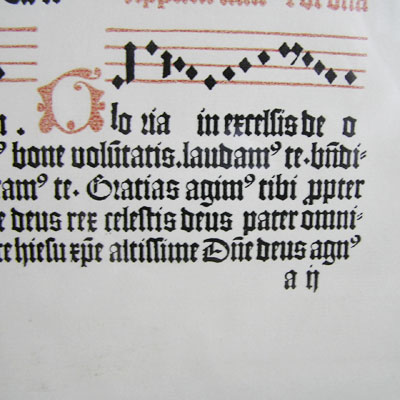 Glo ria in excelsis de o
bone volūtatis. laudamꝰ te. bn̄di⸗
amꝰ te. Gratias agimꝰ tibi ꝓpter
e deus rex celestis deus pater omni⸗
te hiesu xp̄e altissime Dn̄e deus agnꝰ
a ij